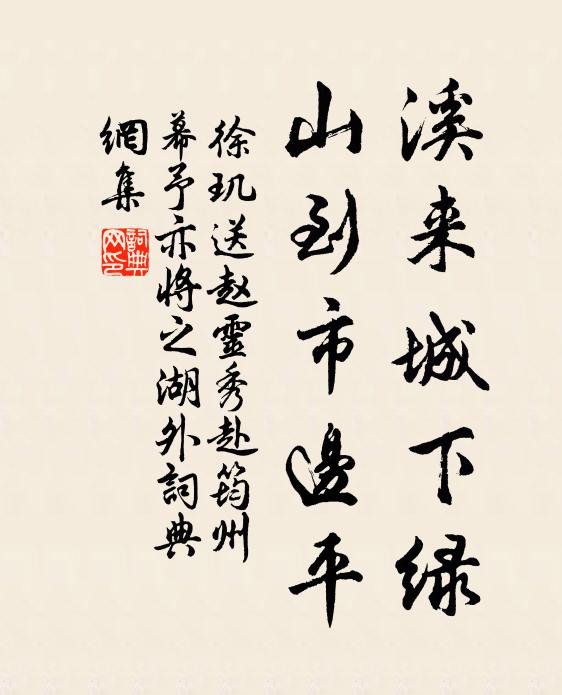 溪来城下绿
山到市邊平
徐玑送赵靈秀赴筠州
幕予亦将之湖外詞典
網集
詞典
网印